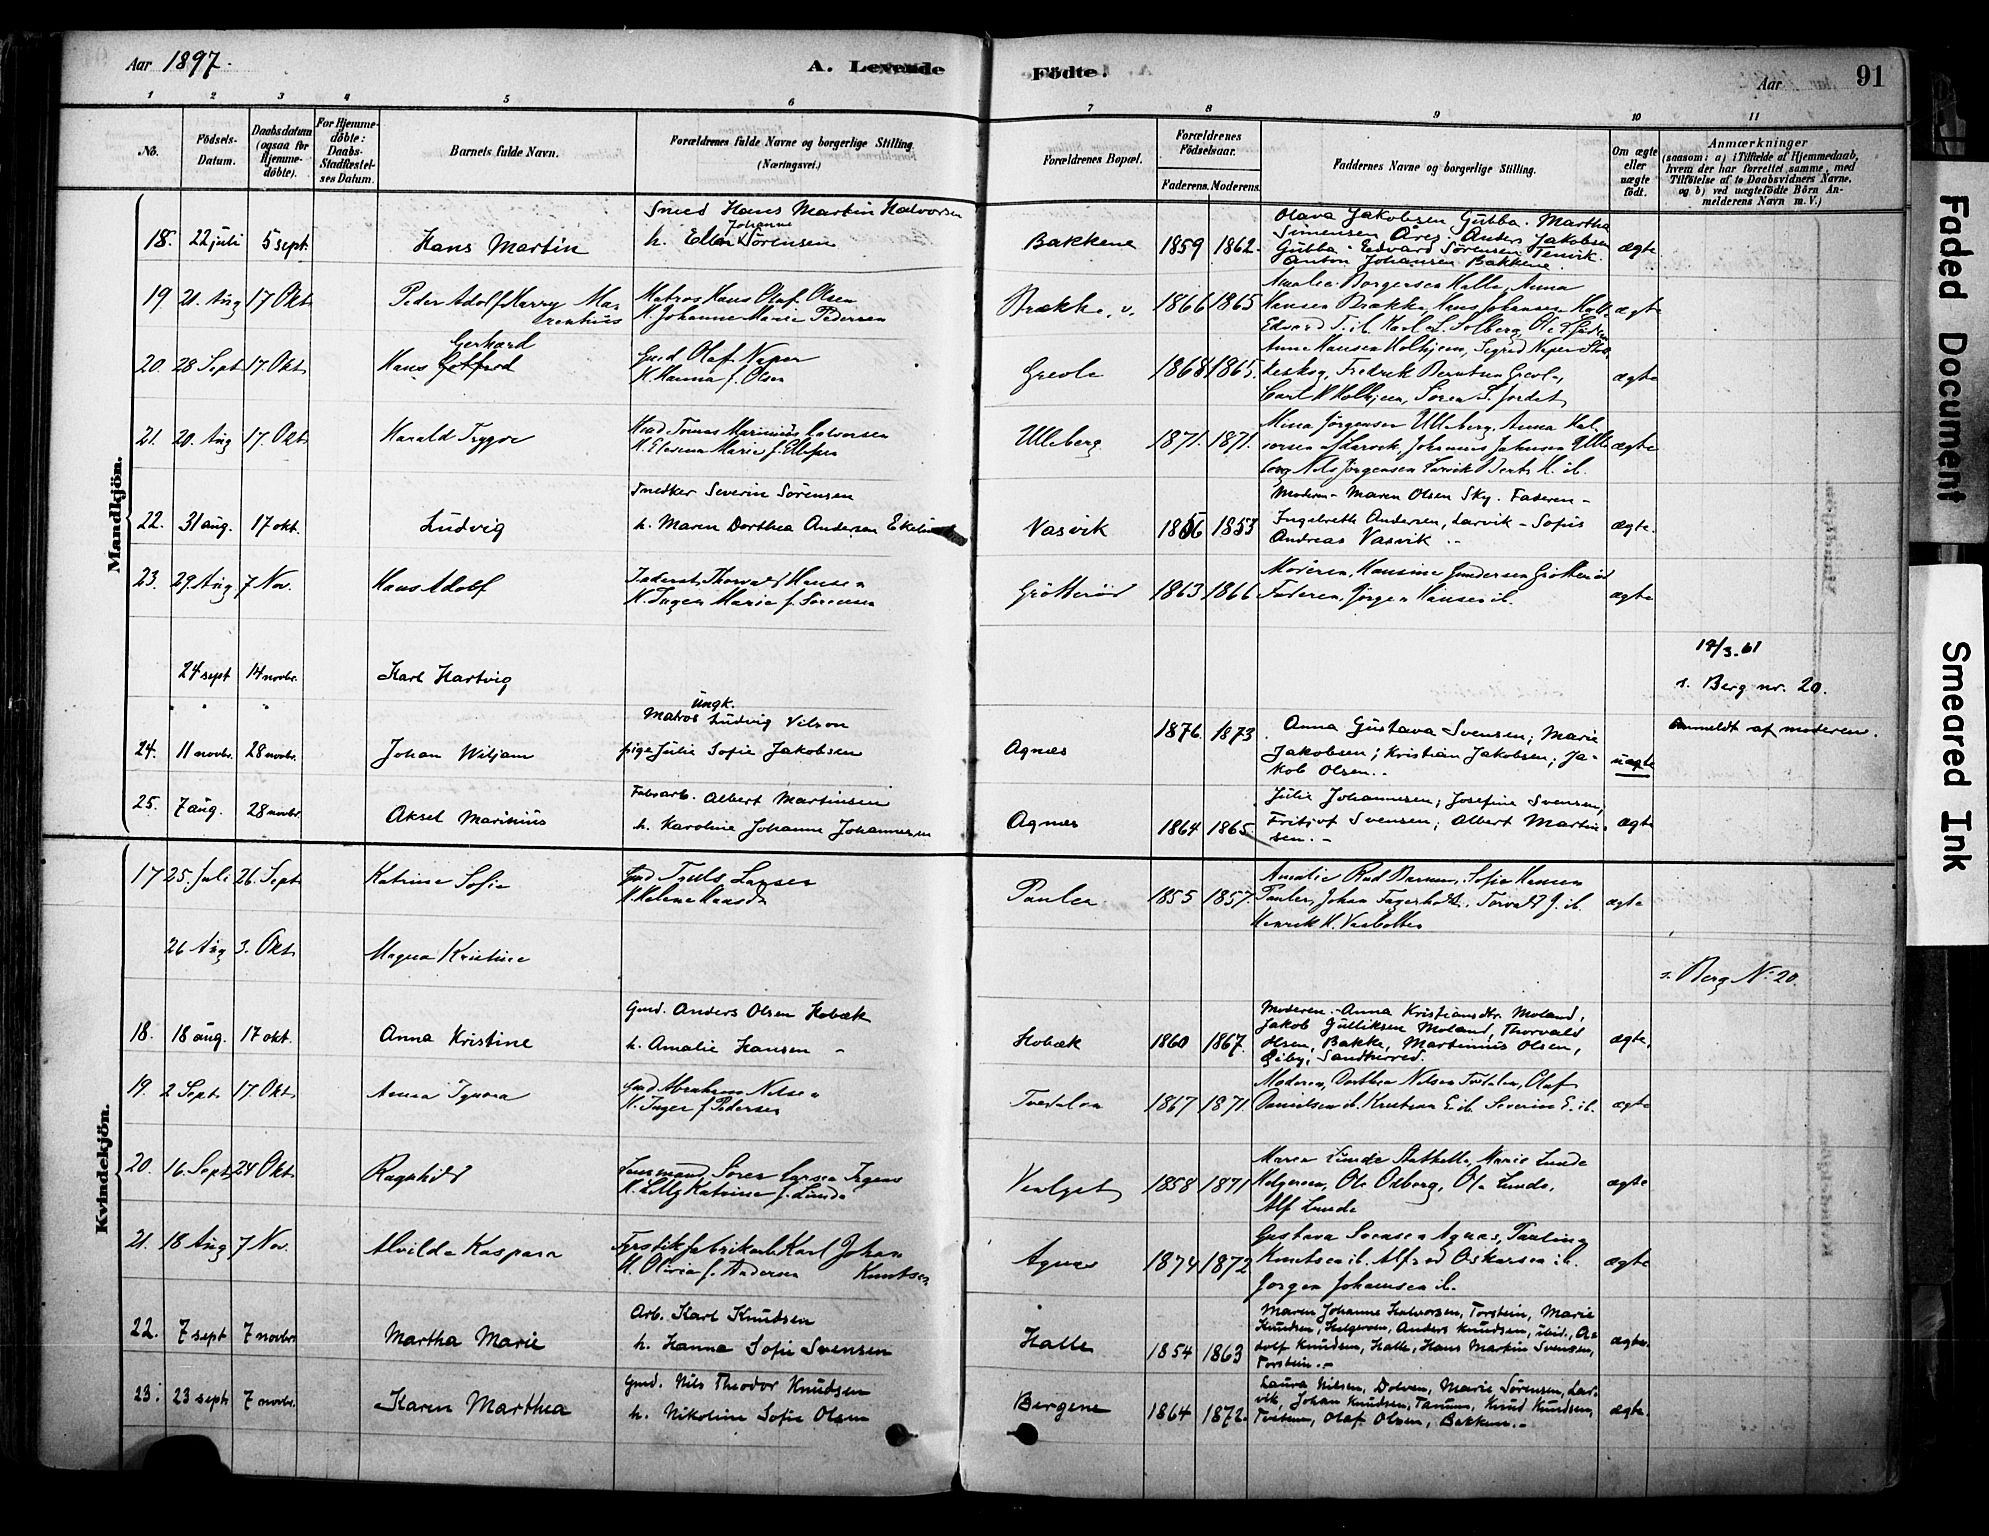 Aar 1897.
A. Levende
Födte.
Aar
91
1 2 3 4 5 6 7 8 9 10 11
No.
Födsels-
Datum.
Daabsdatum
(ogsaa for
Hjemme-
döbte).
For Hjemme-
döbte:
Daabs-
Stadfæstel-
ses Datum.
Barnets fulde Navn.
Forældrenes fulde Navne og borgerlige Stilling.
(Næringsvei.)
Forældrenes Bopæl.
Forældrenes
Födselsaar.
Faderens. Moderens.
Faddernes Navne og borgerlige Stilling.
Om ægte
eller
uægte
födt.
Anmærkninger
(saasom: a) i Tilfælde af Hjemmedaab,
hvem der har forrettet samme, med
Tilföielse af to Daabsvidners Navne,
og b) ved uægtefödte Börn An-
melderens Navn m. V.)
Mandkjön.
18. 22 juli 5 sept. Hans Martin
Smed Hans Martin Halvorsen
Johanne
h. Ellen Sørensen
Bakkene 1859 1862
Olava Jakobsen Gubba. Martha
Simensen Åres. Anders Jakobsen
Gubba. Edvard Sørensen Tenvik.
Anton Johansen Bakkene.
ægte
19 21. Aug 17 Okt Peder Adolf Harry Ma-
rentius
Matros Hans Olaf Olsen
H. Johanne Marie Pedersen
Brække, v. 1866 1865
Amalie Borgersen Halle, Anna
Hansen Brække, Hans Johansen
Edvard T. ib. Karl L. Solberg
ægte
20. 28 Sept 17. Okt Gerhard
Hans Gotfred
Gmd Olaf Neper
H. Hanna f. Olsen
Greola 1868 1865.
Anne Hansen Holhjem, Sigrid Neper
Fredrik Berntsen Greola,
Carl Holhjem, Søren S. Jordet
ægte
21. 20. Aug 17. Okt Harald Trygve
Marinius Halvorsen
Marie f. Ellefsen
Ulleberg 1871. 1871.
Mina Jørgensen Ulleberg. Anna Hal-
vorsen Larvik, Johannes Johnsen Ulle
berg Nils Jørgensen Larvik
ægte
22. 31 aug. 17 okt. Ludvig
Snedker Severin Sørensen
h. Maren Dorthea Andersen
Vasvik 1856 1853
Moderen - Maren Olsen Sky. Faderen -
Ingebreth Andersen, Larvik - Sofus
Andreas Vasvik. -
ægte.
23. 29 Aug 7 Nov. Hans Adolf
Thorvald Hansen
H. Inger Marie f. Sørensen
Grötterød 1863 1866
Moderen, Hansine Gundersen Grötterød
Faderen, Jørgen Hansen ib.
ægte
24 sept 14 novbr. Karl Hartvig
14/3.61
s. Berg nr. 20.
24. 11 novbr. 28 novbr. Johan Wiljam
ungk.
Matros Ludvig Vilson
pige Julie Sofie Jakobsen
Agnæs 1876. 1873
Anna Gustava Svensen; Marie
Jakobsen; Kristian Jakobsen; Ja-
kob Olsen. -
uægte
Anmeldt af moderen.
25. 7 aug. 28 novbr. Aksel Marinius
Fabr.arb. Albert Martinsen
h. Karoline Johanne Johannesen
Agnæs 1864 1865
Julie Johannesen; Josefine Svensen,
Fritjof Svensen; Albert Martin-
sen. -
ægte
Kvindekjön.
17 25. Juli 26. Sept Katrine Sofie
Gmd Truls Larsen
H. Helene
Pauler 1855 1857.
Amalie Rud Sofie Hansen
Pauler, Johan Fagerholt. Torvald J. ib.
Henrik H.
ægte
26 Aug 3. Okt Magna Kristine
s. Berg No 20.
18. 18 aug. 17 okt. Anna Kristine
Gmd. Anders Olsen Hobæk
h. Amalie Hansen -
Hobæk 1860 1867.
Moderen. Anna Kristiansdtr. Moland,
Jakob Gulliksen Moland, Thorvald
Olsen, Bakke, Martinius Olsen,
Sandherred.
ægte,
19. 2 Sept 17. Okt Anna Ignora
Gmd Abraham Nilsen
H. Inger f. Pedersen
Tvedalen 1867 1871.
Moderen, Dorthea Nilsen Tvedalen, Olaf
Danielsen ib. Kristian E. ib. Severin E. ib.
ægte
20. 16. Sept 24 Okt Ragnhild
Lensmand Søren
H. Lilly Katrine f. Lunde
1858 1871
Maren Lunde Stathelle, Marie Lunde
Helgeroa, Ole Odberg, Ole Lunde,
Alf Lunde
ægte
21. 18 Aug 7 Nov. Alvilda Kaspara
Fyrstikfabrikarb. Karl Johan
Knutsen
H. Olivia f. Andersen
Agnæs 1874 1872
Gustava Svensen Agnæs, Pauline
Knutsen ib. Alfred Oskarsen ib.
Jørgen Johansen ib.
ægte
22. 7 sept 7 novbr. Martha Marie
Arb. Karl Knudsen
h. Hanna Sofie Svensen
Halle 1854 1863
Maren Johanne Halvorsen, Torstein, Marie
Knudsen, Helgeroen, Anders Knudsen, ibid., A-
dolf Knudsen, Halle, Hans Martin Svensen,
Torstein. -
ægte.
23. 23 sept 7 novbr. Karen Marthea
Gmd. Nils Theodor Knudsen
h. Nikoline Sofie Olsen
Bergene 1864 1872.
Laura Nilsen, Dolven, Marie Sørensen, Lar-
vik, Johan Knudsen, Tanum, Knud Knudsen,
Olaf Olsen, Bakken. -
ægte.
Faded Document
Smeared Ink